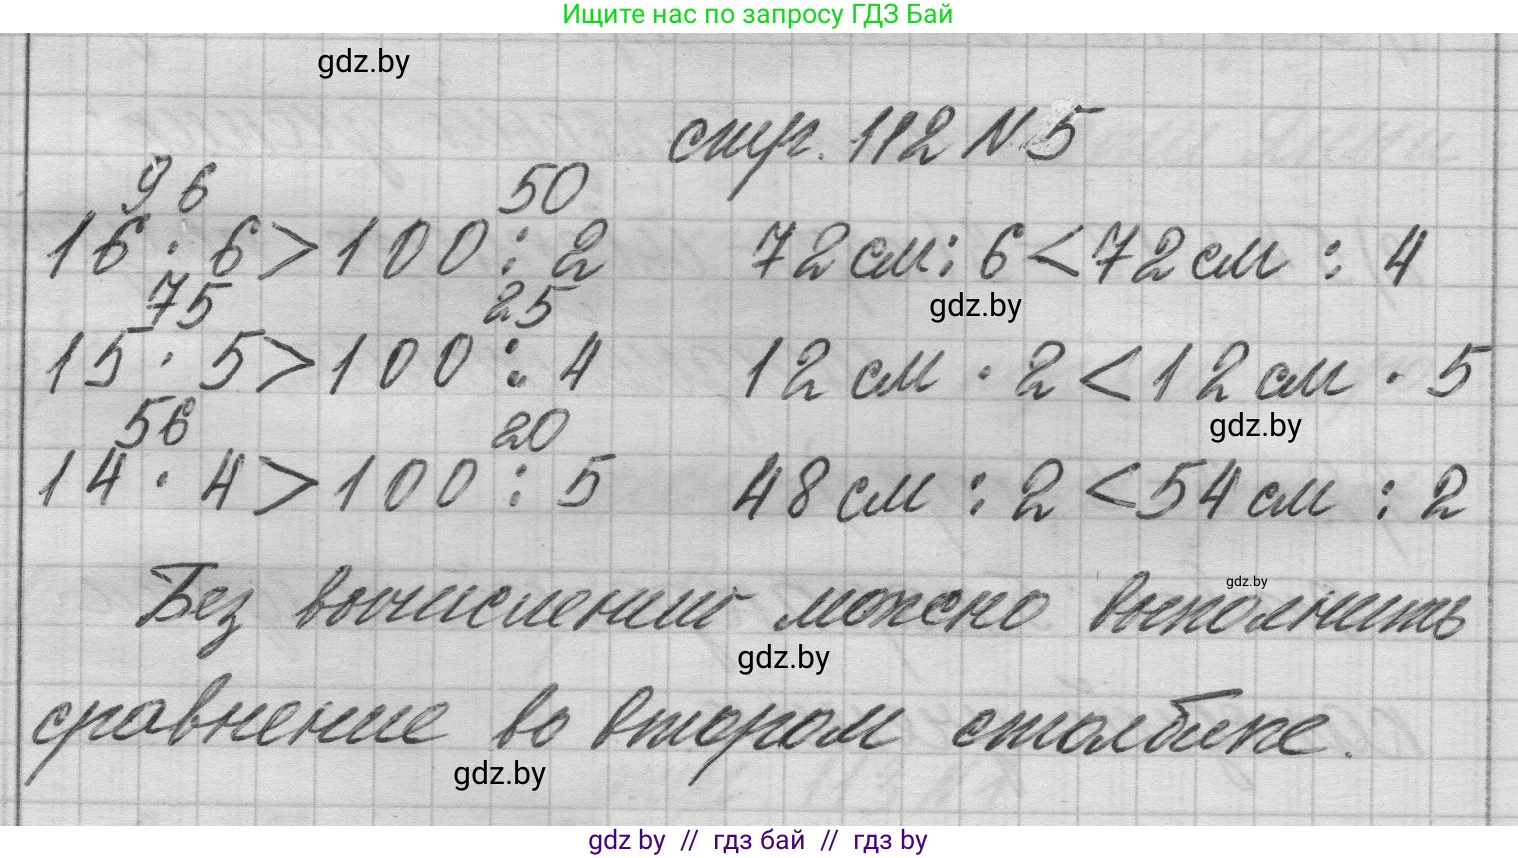 Ищите нас по запросу ГДЗ Бай
gdz.by
стр. 112 N 5
96 50
16 · 6 > 100 : 2 72 см : 6 < 72 см : 4
gdz.by
75 25
15 · 5 > 100 : 4 12 см · 2 < 12 см · 5
gdz.by
56 20
14 · 4 > 100 : 5 48 см : 2 < 54 см : 2
gdz.by
Без вычислений можно выполнить
gdz.by
сравнение во втором столбике.
gdz.by
gdz by // гдз бай // гдз by